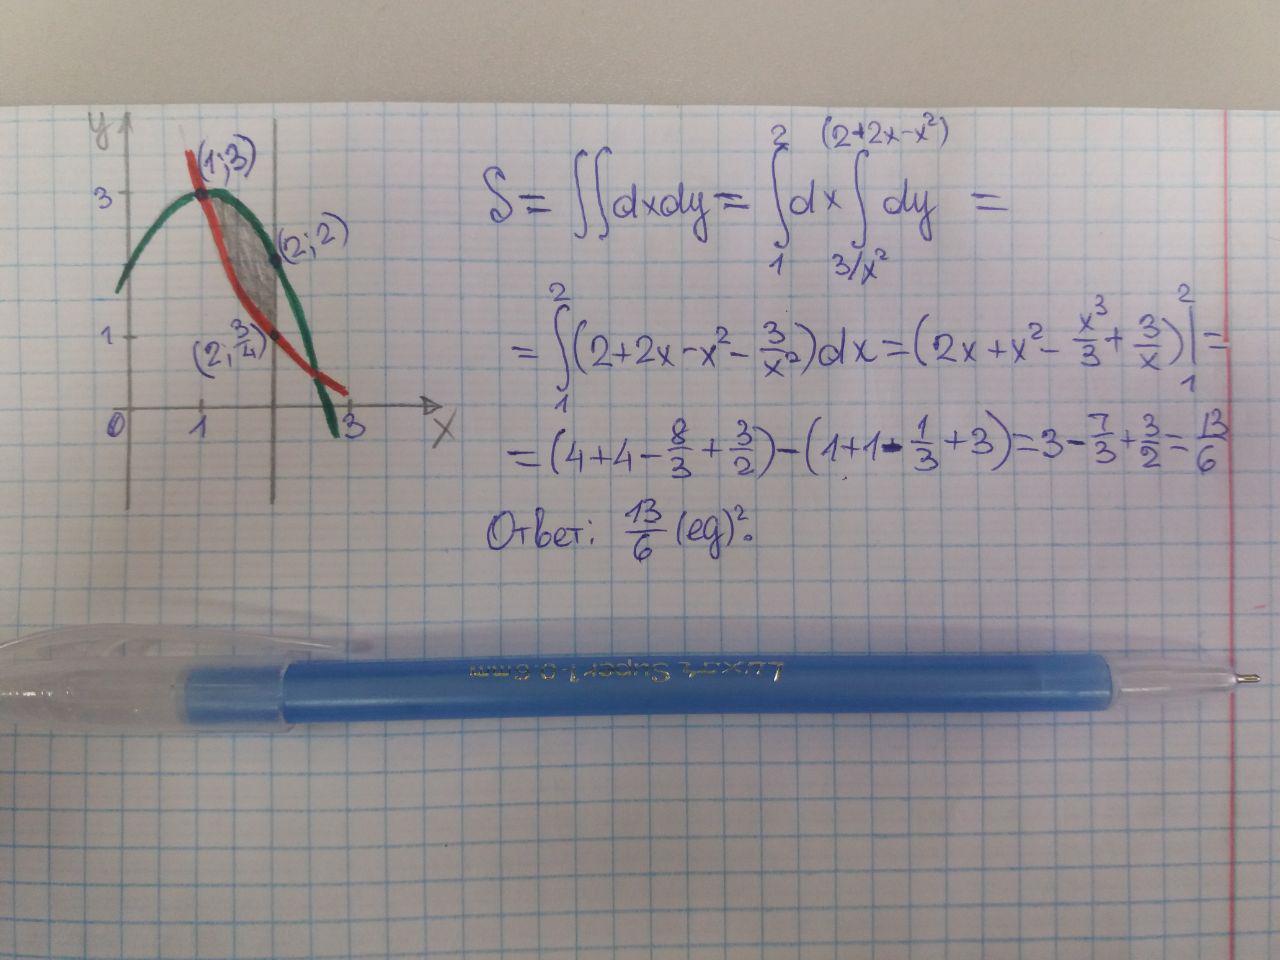 y
(1;3)
3
(2;2)
1
(2;3/4)
0 1 3 X
S = ∬dxdy = ∫₁² dx ∫_{3/x²}^{(2+2x-x²)} dy =
= ∫₁² (2+2x-x²-3/x²)dx = (2x+x²-x³/3+3/x)|₁² =
= (4+4-8/3+3/2)-(1+1-1/3+3)=3-7/3+3/2=13/6
Ответ: 13/6 (ед)².
Luxor Super 1.0.6mm